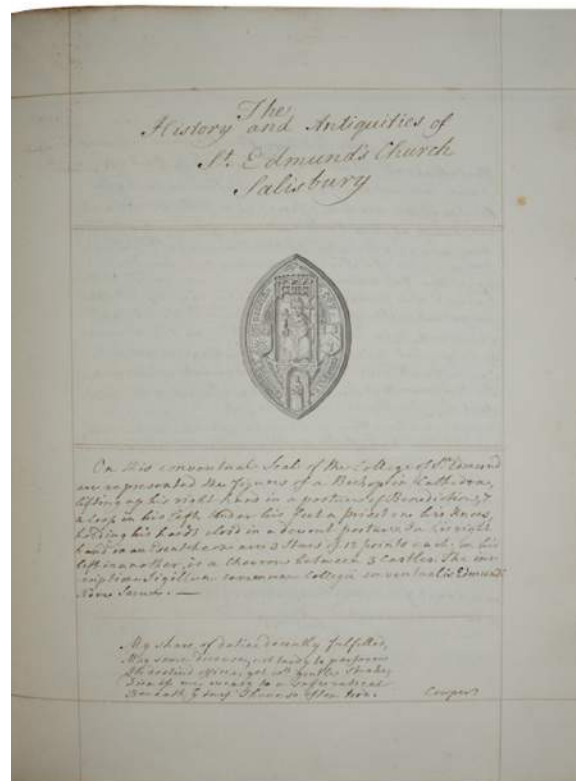 The
History and Antiquities of
St. Edmund's Church
Salisbury
On this conventual Seal of the College of St. Edmund
are represented the figures of a Bishop in Cathedra,
lifting up his right hand in a posture of Benediction, &
a in his left. Under his feet a Priest on his knees,
holding his hands closed in a devout posture. On his right
hand in an Escutcheon are 3 Stars of 12 points each. On his
left in another, is a chevron between 3 Castles. The ins-
cription Sigillum commune Collegii conventualis Edmundi
Nove Sarum. —
My share of duties decently fulfilled,
May some disease, not tardy to perform
Its destin'd office, yet with gentle stroke,
Dismiss me weary to a safe retreat
Beneath turf I have so often trod.
Cowper